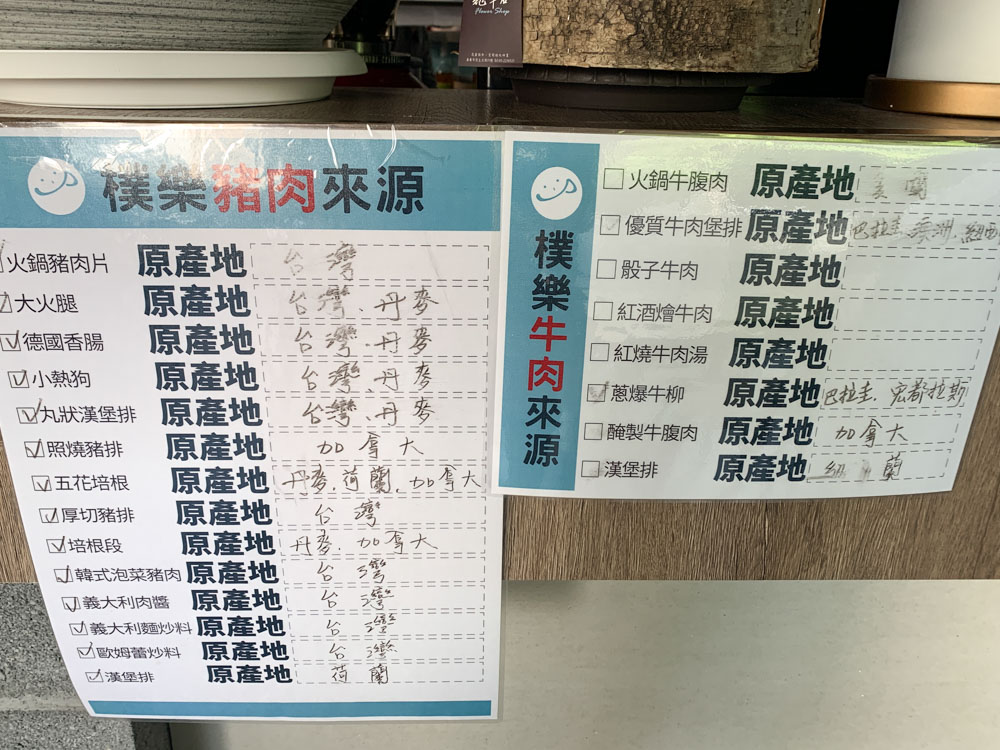 Flower Shop
樸樂豬肉來源
火鍋豬肉片 原產地 台灣
大火腿 原產地 台灣.丹麥
德國香腸 原產地 台灣.丹麥
小熱狗 原產地 台灣.丹麥
丸狀漢堡排 原產地 台灣.丹麥
照燒豬排 原產地 加拿大
五花培根 原產地 丹麥.荷蘭.加拿大
厚切豬排 原產地 台灣
培根段 原產地 丹麥.加拿大
韓式泡菜豬肉 原產地 台灣
義大利肉醬 原產地 台灣
義大利麵炒料 原產地 台灣
歐姆蕾炒料 原產地 台灣
漢堡排 原產地 荷蘭
樸樂牛肉來源
火鍋牛腹肉 原產地
優質牛肉堡排 原產地 巴拉圭.澳洲.紐西
骰子牛肉 原產地
紅酒燴牛肉 原產地
紅燒牛肉湯 原產地
蔥爆牛柳 原產地 巴拉圭.宏都拉斯
醃製牛腹肉 原產地 加拿大
漢堡排 原產地 紐 蘭